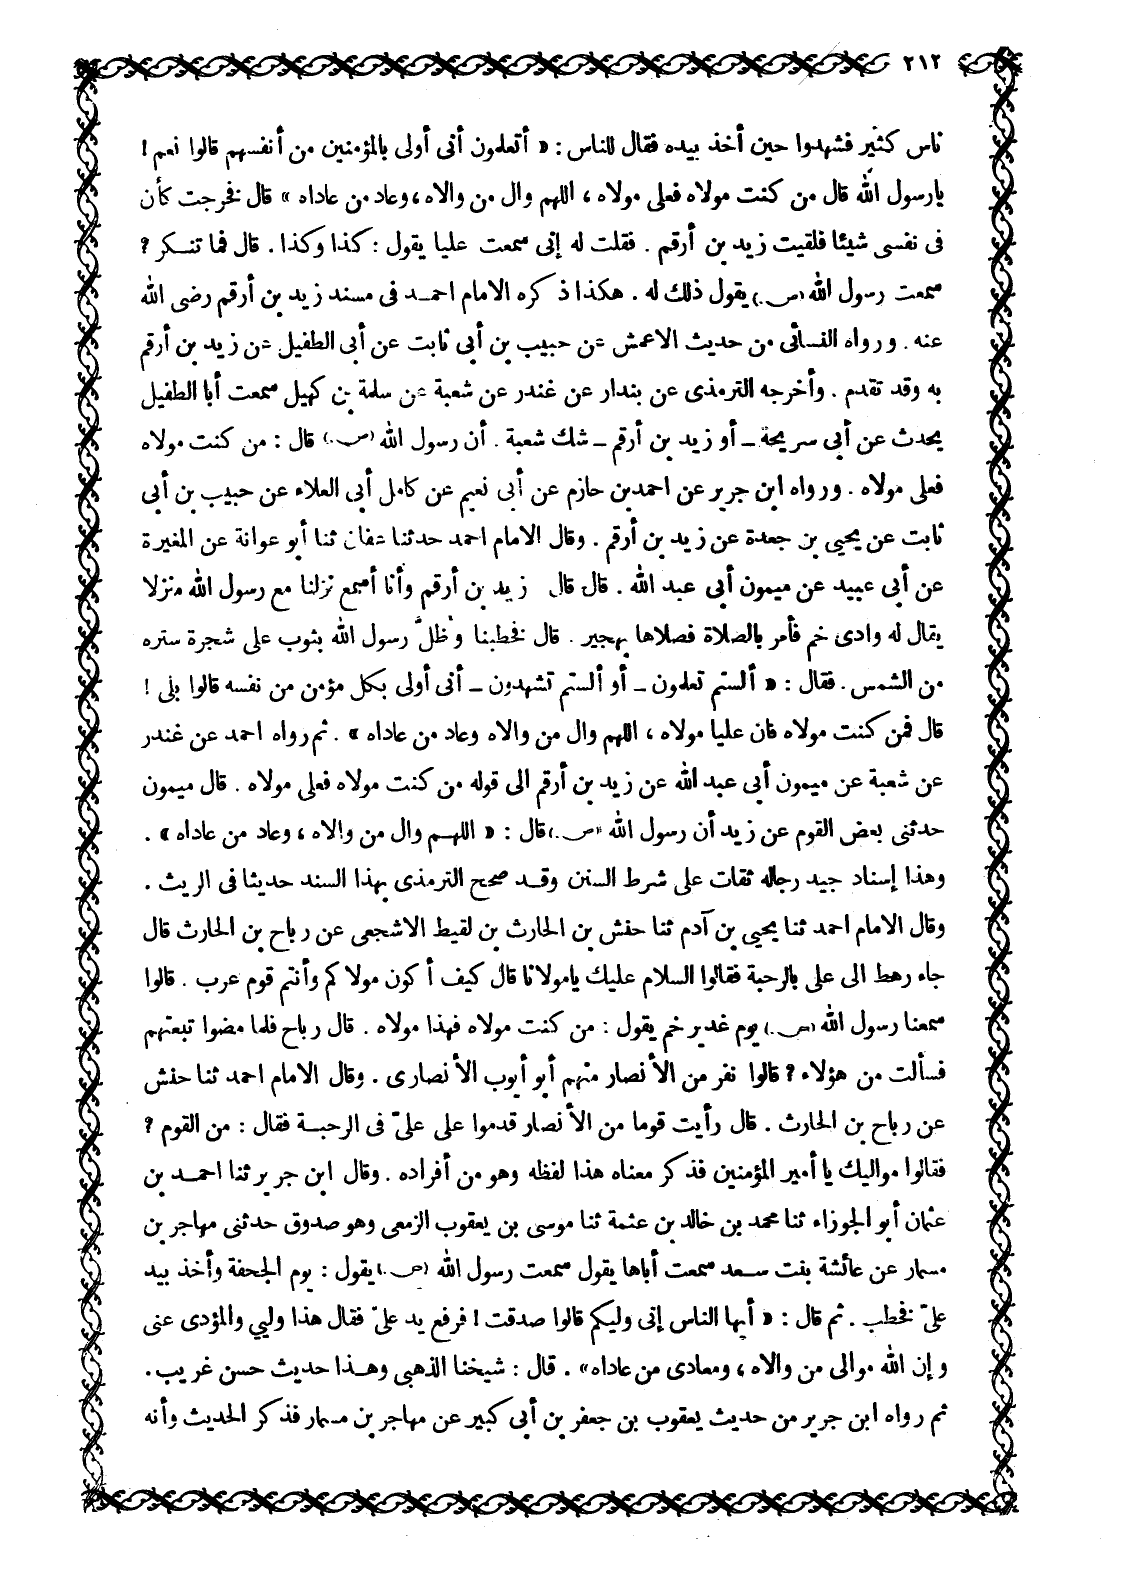 ٢١٢
ناس كثير فشهدوا حين أخذ بيده فقال للناس : « أتعلمون أنى أولى بالمؤمنين من أنفسهم قالوا نعم !
يارسول الله قال من كنت مولاه فعلى مولاه ، اللهم وال من والاه ، وعاد من عاداه » قال فخرجت كأن
فى نفسى شيئا فلقيت زيد بن أرقم . فقلت له إنى سمعت عليا يقول : كذا وكذا . قال فما تنكر ?
سمعت رسول الله (ص) يقول ذلك له . هكذا ذكره الامام احمد فى مسند زيد بن أرقم رضى الله
عنه . ورواه النسائى من حديث الاعمش عن حبيب بن أبى ثابت عن أبى الطفيل عن زيد بن أرقم
به وقد تقدم . وأخرجه الترمذى عن بندار عن غندر عن شعبة عن سلمة بن كهيل سمعت أبا الطفيل
يحدث عن أبى سريحة ـ أو زيد بن أرقم ـ شك شعبة . أن رسول الله (ص) قال : من كنت مولاه
فعلى مولاه . ورواه ابن جرير عن احمد بن حازم عن أبى نعيم عن كامل أبى العلاء عن حبيب بن أبى
ثابت عن يحيى بن جعدة عن زيد بن أرقم . وقال الامام احمد حدثنا عفان ثنا أبو عوانة عن المغيرة
عن أبى عبيد عن ميمون أبى عبد الله . قال قال زيد بن أرقم وأنا أسمع نزلنا مع رسول الله منزلا
يقال له وادى خم فأمر بالصلاة فصلاها بهجير . قال فخطبنا وظلّ رسول الله بثوب على شجرة ستره
من الشمس . فقال : « ألستم تعلمون ـ أو ألستم تشهدون ـ أنى أولى بكل مؤمن من نفسه قالوا بلى !
قال فمن كنت مولاه فان عليا مولاه ، اللهم وال من والاه وعاد من عاداه » . ثم رواه احمد عن غندر
عن شعبة عن ميمون أبى عبد الله عن زيد بن أرقم الى قوله من كنت مولاه فعلى مولاه . قال ميمون
حدثنى بعض القوم عن زيد أن رسول الله (ص) قال : « اللهم وال من والاه ، وعاد من عاداه » .
وهذا إسناد جيد رجاله ثقات على شرط السنن وقد صحح الترمذى بهذا السند حديثا فى الريث .
وقال الامام احمد ثنا يحيى بن آدم ثنا حنش بن الحارث بن لقيط الاشجعى عن رباح بن الحارث قال
جاء رهط الى على بالرحبة فقالوا السلام عليك يامولانا قال كيف أكون مولاكم وأنتم قوم عرب . قالوا
سمعنا رسول الله (ص) يوم غدير خم يقول : من كنت مولاه فهذا مولاه . قال رباح فلما مضوا تبعتهم
فسألت من هؤلاء ? قالوا نفر من الأنصار منهم أبو أيوب الأنصارى . وقال الامام احمد ثنا حنش
عن رباح بن الحارث . قال رأيت قوما من الأنصار قدموا على علىّ فى الرحبة فقال : من القوم ?
فقالوا مواليك يا أمير المؤمنين فذكر معناه هذا لفظه وهو من أفراده . وقال ابن جرير ثنا احمد بن
عثمان أبو الجوزاء ثنا محمد بن خالد بن عثمة ثنا موسى بن يعقوب الزمعى وهو صدوق حدثنى مهاجر بن
مسمار عن عائشة بنت سعد سمعت أباها يقول سمعت رسول الله (ص) يقول : يوم الجحفة وأخذ بيد
علىّ فخطب . ثم قال : « أيها الناس إنى وليكم قالوا صدقت ! فرفع يد علىّ فقال هذا وليي والمؤدى عنى
وإن الله موالى من والاه ، ومعادى من عاداه » . قال : شيخنا الذهبى وهذا حديث حسن غريب .
ثم رواه ابن جرير من حديث يعقوب بن جعفر بن أبى كبير عن مهاجر بن مسمار فذكر الحديث وأنه